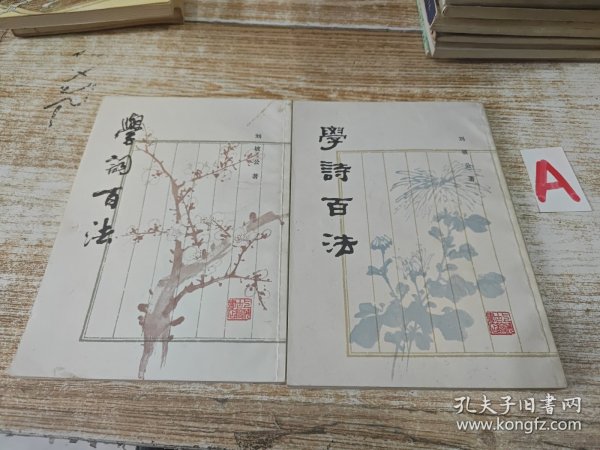 學詞百法
刘坡公 著
學詩百法
刘坡公 著
A
孔夫子旧书网
www.kongfz.com